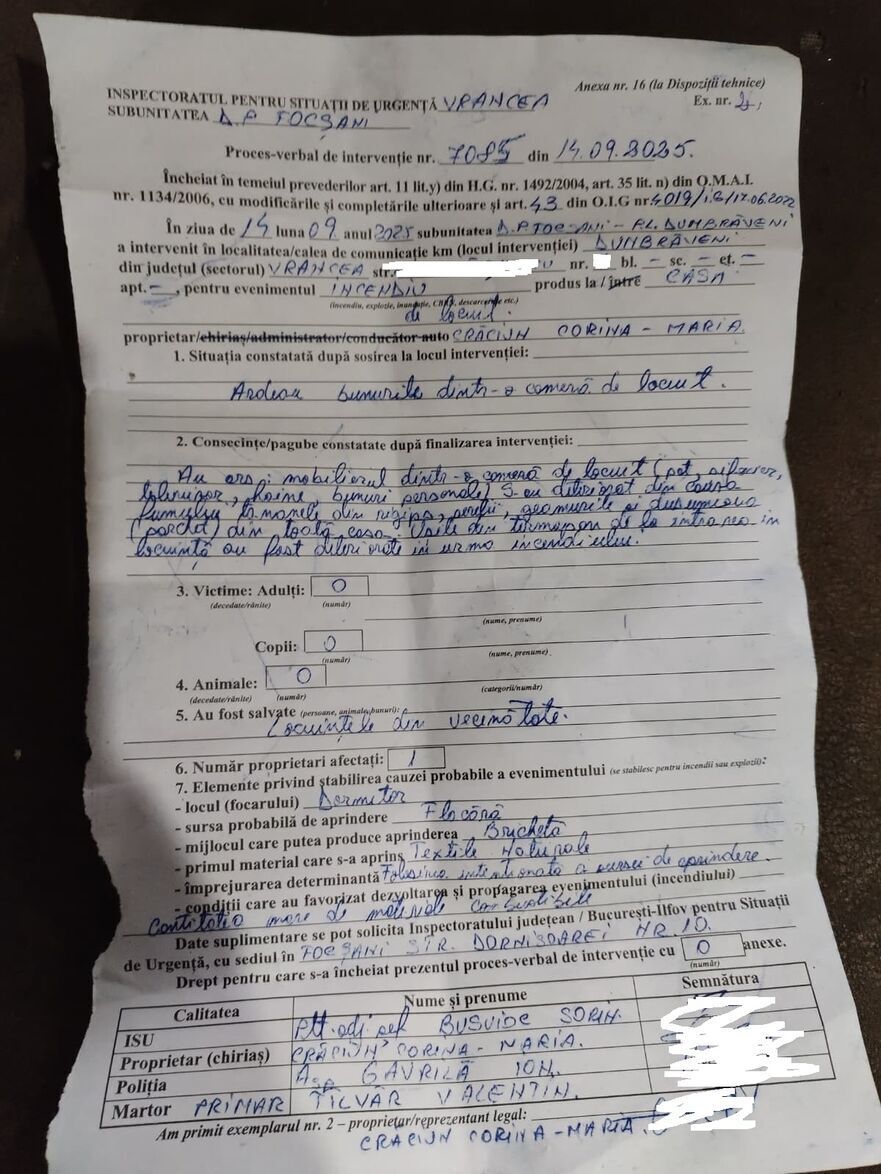 Anexa nr. 16 (la Dispoziții tehnice)
Ex. nr. 2,
INSPECTORATUL PENTRU SITUAȚII DE URGENȚĂ VRANCEA
SUBUNITATEA D.P. FOCȘANI
Proces-verbal de intervenție nr. 7085 din 14.09.2025.
Încheiat în temeiul prevederilor art. 11 lit.y) din H.G. nr. 1492/2004, art. 35 lit. n) din O.M.A.I.
nr. 1134/2006, cu modificările și completările ulterioare și art. 43 din O.I.G nr. 4019/I.G/17.06.2022
În ziua de 14 luna 09 anul 2025 subunitatea D.P FOCȘANI - P.L. DUMBRĂVENI
a intervenit în localitatea/calea de comunicație km (locul intervenției) DUMBRĂVENI
din județul (sectorul) VRANCEA str. nr. bl. - sc. - et. -
apt. -, pentru evenimentul INCENDIU produs la / între CASĂ
(incendiu, explozie, inundație, CBRN, descarcerare etc.)
de locuit.
proprietar/chiriaș/administrator/conducător auto CRĂCIUN CORINA - MARIA
1. Situația constatată după sosirea la locul intervenției:
Ardeau bunurile dintr-o cameră de locuit.
2. Consecințe/pagube constatate după finalizarea intervenției:
Au ars: mobilierul dintr-o cameră de locuit (pat, șifonier,
televizor, haine, bunuri personale) S-au deteriorat din cauza
fumului din rigips, pereții, geamurile și
(parchet) din toată casa. Ușile din termopan de la intrarea în
locuință au fost deteriorate în urma incendiului.
3. Victime: Adulți: 0
(decedate/rănite) (număr)
(nume, prenume)
Copii: 0
(număr) (nume, prenume)
4. Animale: 0
(decedate/rănite) (număr) (categorii/număr)
5. Au fost salvate (persoane, animale, bunuri):
Locuințele din vecinătate.
6. Număr proprietari afectați: 1
7. Elemente privind stabilirea cauzei probabile a evenimentului (se stabilesc pentru incendii sau explozii):
- locul (focarului) Dormitor
- sursa probabilă de aprindere Flacără
- mijlocul care putea produce aprinderea Brichetă
- primul material care s-a aprins Textile Naturale
- împrejurarea determinantă Folosirea intenționată a sursei de aprindere.
- condiții care au favorizat dezvoltarea și propagarea evenimentului (incendiului)
Cantitatea mare de materiale combustibile
Date suplimentare se pot solicita Inspectoratului județean / București-Ilfov pentru Situații
de Urgență, cu sediul în FOCȘANI STR. DORNIȘOAREI NR. 10.
Drept pentru care s-a încheiat prezentul proces-verbal de intervenție cu 0 anexe.
(număr)
Calitatea Nume și prenume Semnătura
ISU Plt. adj. șef BUSUIOC SORIN.
Proprietar (chiriaș) CRĂCIUN CORINA - MARIA.
Poliția GAVRILĂ ION.
Martor PRIMAR TILVĂR VALENTIN.
Am primit exemplarul nr. 2 – proprietar/reprezentant legal:
CRĂCIUN CORINA - MARIA.